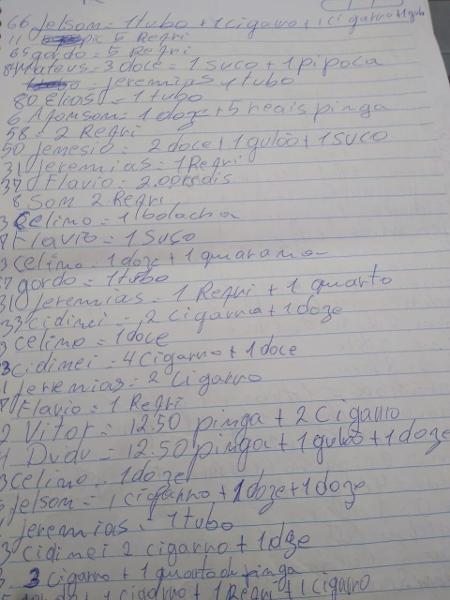 66 Jelsom = 1 tubo + 1 cigarro + 1 cigarro + 1 gulo
11 5 Refri
65 gordo = 5 Refri
Mateus = 3 doce = 1 suco + 1 pipoca
Jeremias 1 tubo
80 Elias = 1 tubo
6 Afomsom = 1 doze + 5 reais pinga
58 = 2 Refri
50 Jemesio = 2 doce + 1 gulão + 1 suco
31 Jeremias = 1 Refri
37 Flavio = 2.00 redis
8 Som 2 Refri
3 Celimo = 1 bolacha
Flavio = 1 Suco
3 Celimo = 1 doze + 1 quarama
7 gordo = 1 tubo
31 Jeremias = 1 Refri + 1 quarto
33 cidimei = 2 cigarro + 1 doze
3 celimo = 1 doce
3 cidimei = 4 cigarro + 1 doce
1 Jeremias = 2 cigarro
Flavio = 1 Refri
2 Vitor = 12.50 pinga + 2 cigarro
1 Dudu = 12.50 pinga + 1 gulão + 1 doze
3 celimo = 1 doze
Jelsom = 1 cigarro + 1 doze + 1 doze
Jeremias = 1 tubo
3 cidimei 2 cigarro + 1 doze
3 cigarro + 1 quarto de pinga
+ 1 cigarro + 1 Refri + 1 cigarro